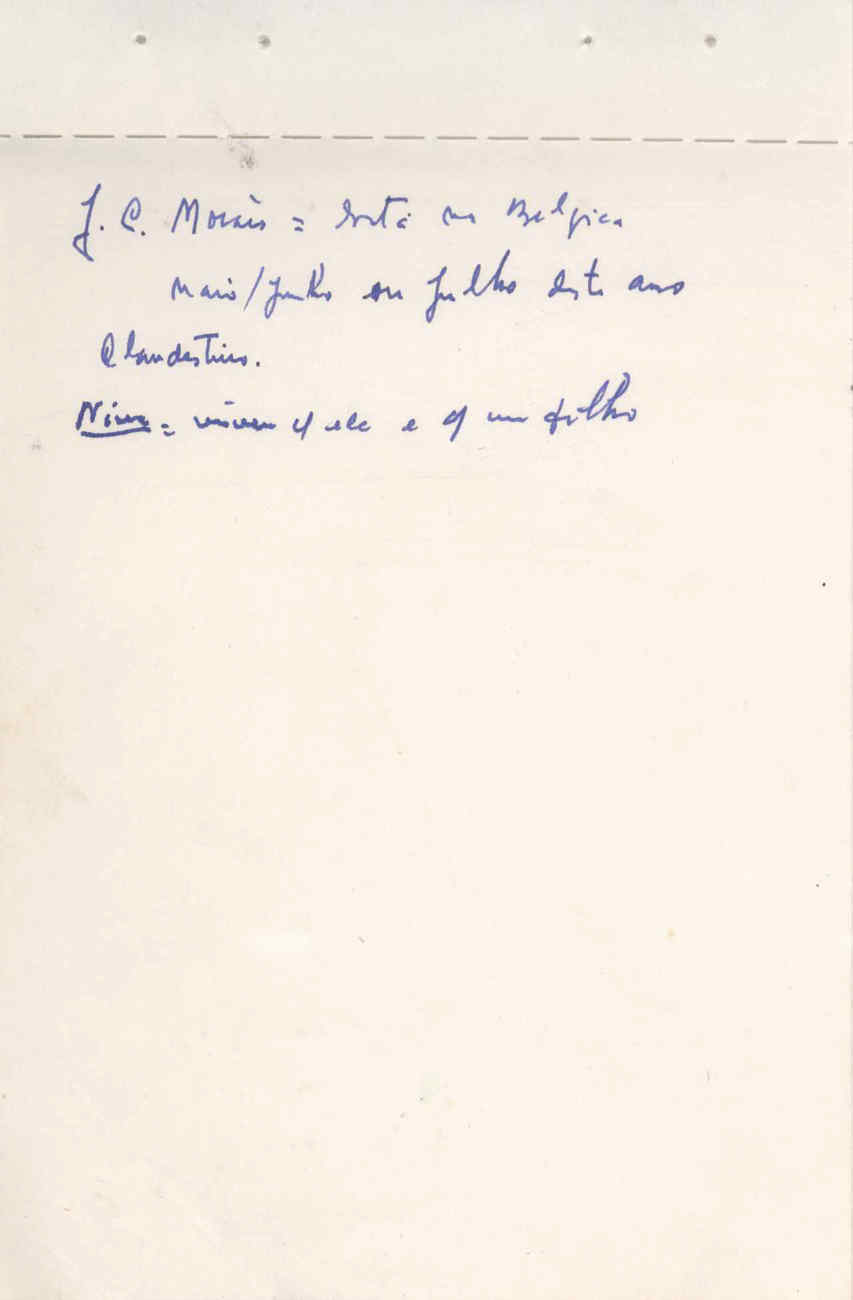 J. C. Morais = está na Belgica
Maio/Junho ou Julho deste ano
Clandestino.
Nina = viveu c/ ele e c/ um filho